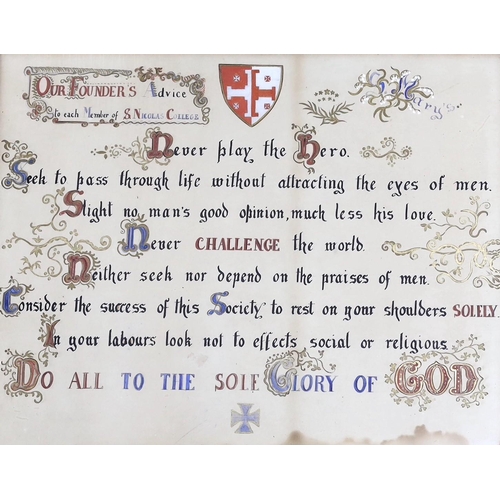 Our Founder's Advice
to each Member of S. Nicolas College
S. Mary's
Never play the Hero.
Seek to pass through life without attracting the eyes of men.
Slight no man's good opinion, much less his love.
Never CHALLENGE the world.
Neither seek nor depend on the praises of men.
Consider the success of this Society to rest on your shoulders SOLELY.
In your labours look not to effects social or religious
DO ALL TO THE SOLE GLORY OF GOD